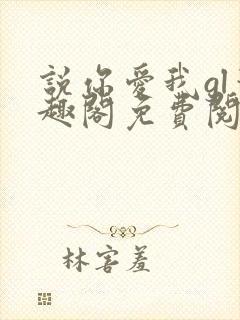 說你愛我gl
趣閣免費閱
林害羞